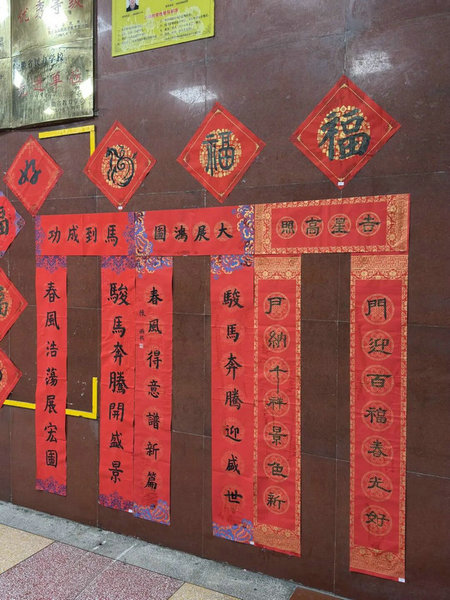 福
福
好
吉星高照
門迎百福春光好
戶納千祥景色新
大展鴻圖
駿馬奔騰迎盛世
春風得意譜新篇
馬到成功
駿馬奔騰開盛景
春風浩蕩展宏圖